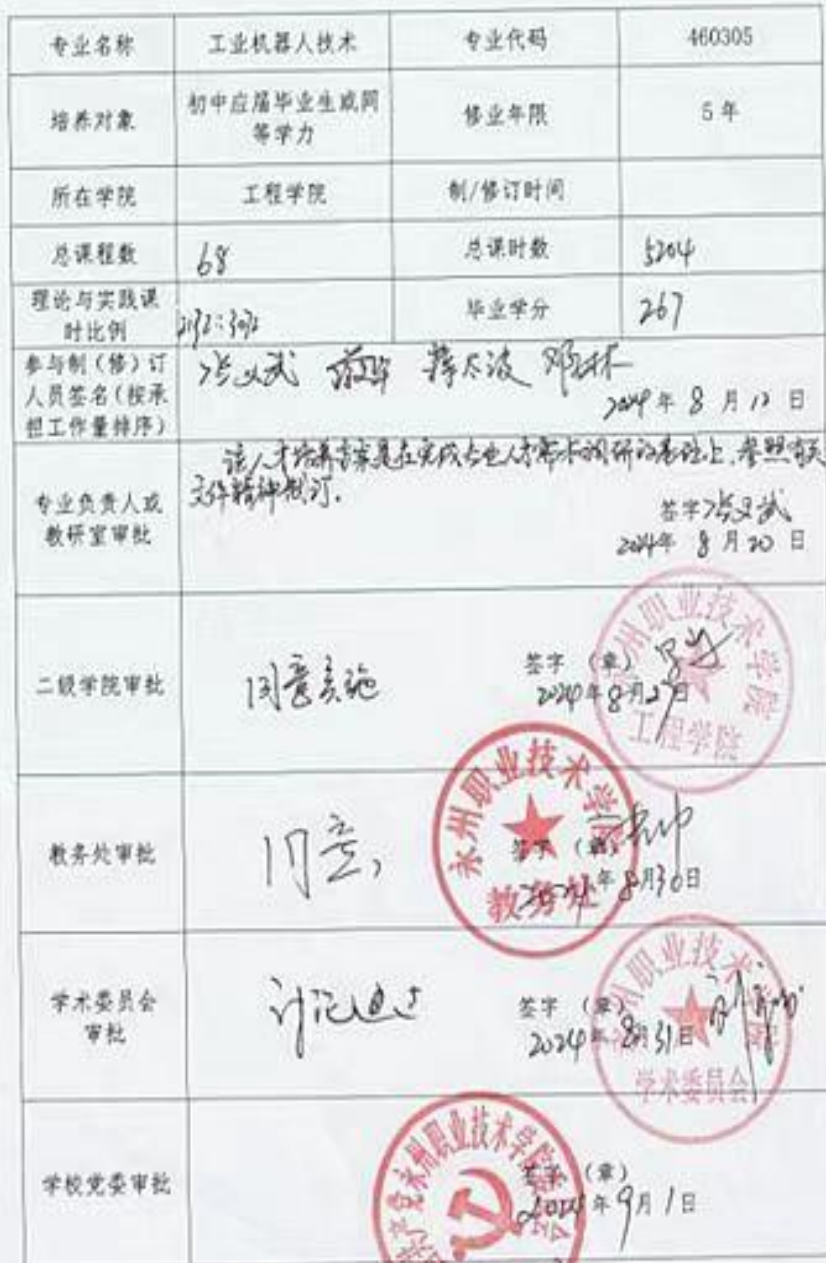 专业名称 工业机器人技术 专业代码 460305
培养对象 初中应届毕业生或同 修业年限 5 年
等学力
所在学院 工程学院 制/修订时间
总课程数 68 总课时数 5204
理论与实践课 毕业学分 267
时比例
参与制（修）订 张义武
人员签名（按承
担工作量排序） 2024 年 8 月 12 日
该人才培养方案是在完成专业人才需求调研的基础上，参照有关
文件精神制订。
专业负责人或 签字 张义武
教研室审批 2024年 8 月 20 日
二级学院审批 同意实施 签字 （章）
2024年8月27日
永州职业技术学院
工程学院
教务处审批 同意， 签字 （章）
2024年8月30日
永州职业技术学院
教务处
学术委员会 讨论通过 签字 （章）
审批 2024年 8月31日
永州职业技术学院
学术委员会
学校党委审批 签字 （章）
2024年9月1日
中国共产党永州职业技术学院委员会